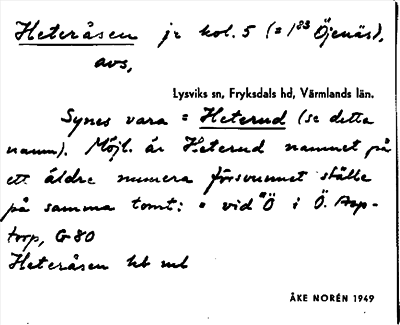 Heteråsen jr kol. 5 (= 1⁸³ Öjenäs),
avs,
Lysviks sn, Fryksdals hd, Värmlands län.
Synes vara = Heterud (se detta
namn). Möjl. är Heterud namnet på
ett äldre numera försvunnet ställe
på samma tomt: vid "Ö i Ö. Asp-
torp, G 80
Heteråsen hb mb
ÅKE NORÉN 1949